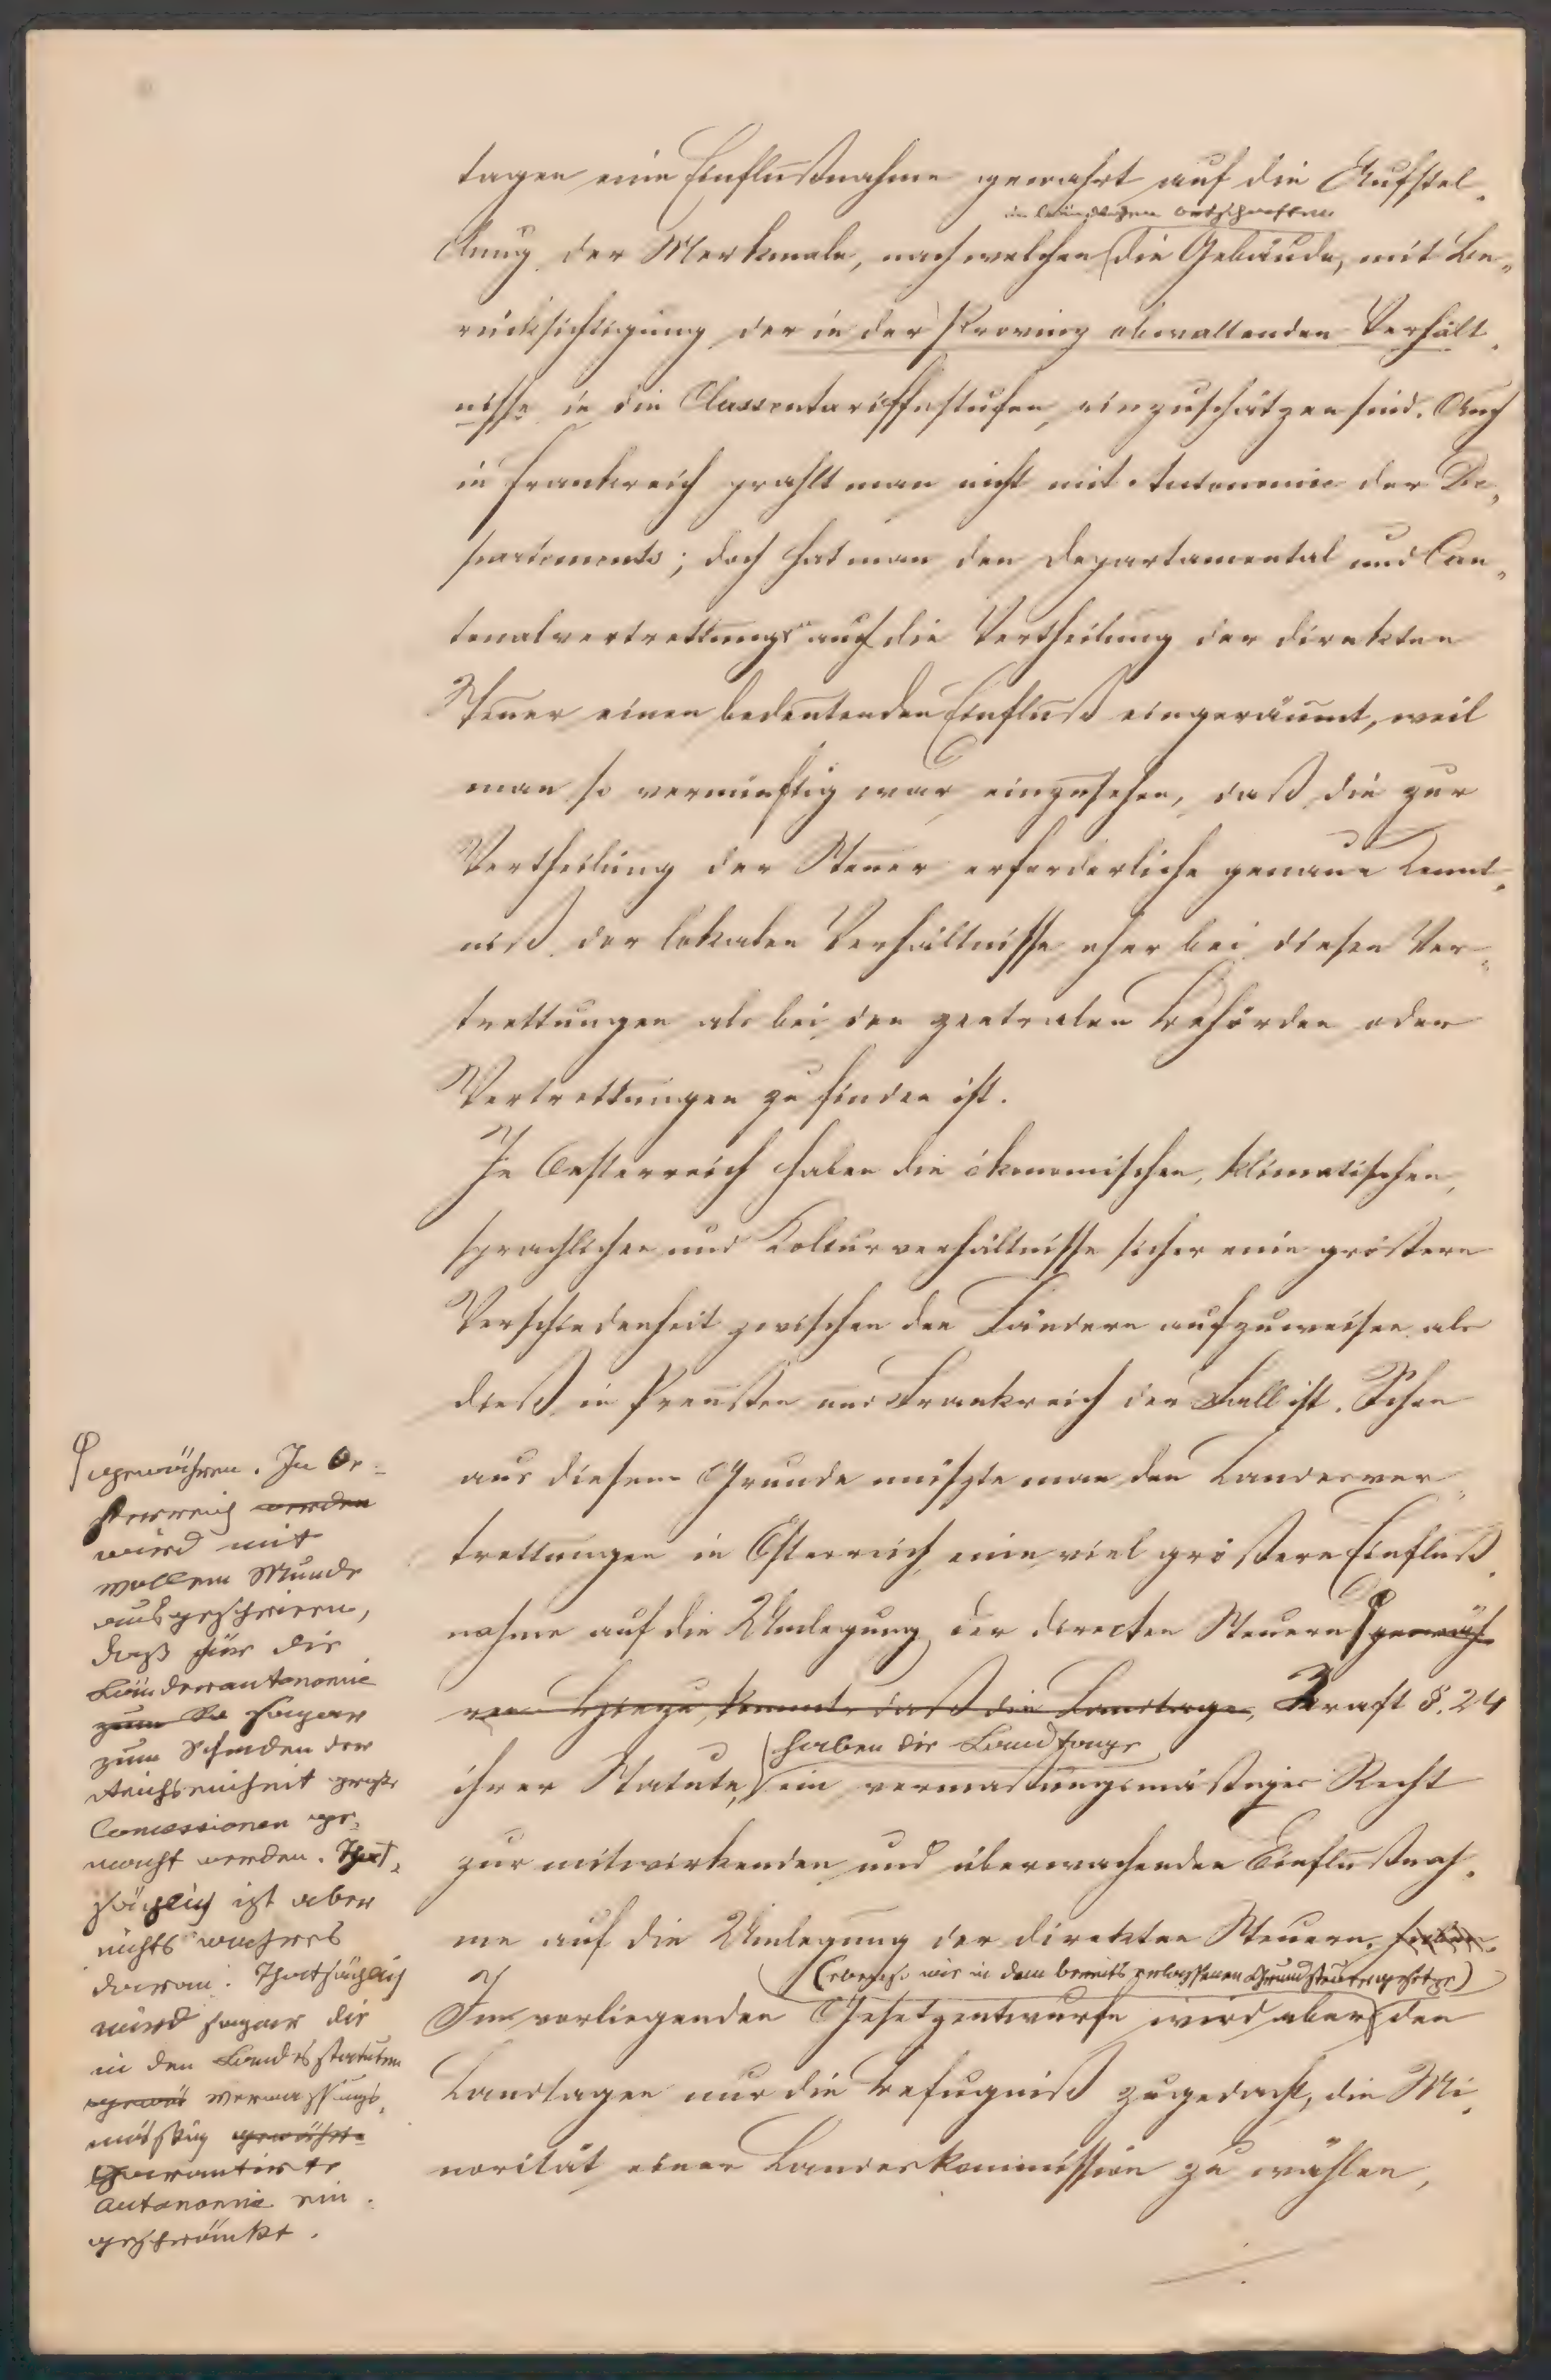 tagen eine Einflußnahme gewahrt auf die Aufstel„
in ländlichen Ortschaften
lung der Merkmale, nach welchen die Gebäude, mit Be„
rücksichtigung der in der Provinz obwaltenden Verhält„
nisse in die Classentariffsstufen einzuschätzen sind. Auch
in Frankreich prahlt man nicht mit Autonomie der De„
partements; doch hat man den Departamental und Can„
tonalvertrettungen auf die Vertheilung der direkten
Steuer einen bedeutenden Einfluß eingeräumt, weil
man so vernünftig war einzusehen, daß die zur
Vertheilung der Steuer erforderliche genaue Kennt„
niß der lokalen Verhältnisse eher bei diesen Ver„
trettungen als bei den zentralen Behörden oder
Vertrettungen zu finden ist.
In Oesterreich haben die ökonomischen, klimatischen,
sprachlichen und Kolturverhältnisse sicher eine größere
Verschiedenheit zwischen den Ländern aufzuweisen als
dieß in Preußen und Frankreich der Fall ist. Schon
aus diesem Grunde müßte man den Landesver„
trettungen in Österreich eine viel größere Einfluß„
nahme auf die Umlegung der directen Steuern gewäh„
ren. Hiezu kommt, daß die Landtage, Kraft §. 24
haben die Landtage
ihrer Statute, ein verfassungsmäßiges Recht
zur mitwirkenden und überwachenden Einflußnah„
me auf die Umlegung der direkten Steuern. haben.
(ebenso wie in dem bereits erlassenen Grundsteuergesetze)
Im vorliegenden Gesetzentwurfe wird aber den
Landtagen nur die Befugniß zugedacht, die Mi„
norität einer Landeskommission zu wählen,
gewähren. In Oe„
sterreich werden
wird mit
vollem Munde
ausgeschrieen,
daß für die
Länderautonomie
zum Sc sogar
zum Schaden der
Reichseinheit große
Concessionen ge„
macht werden. That„
sächlich ist aber
nichts wahres
daran. Thatsächlich
wird sogar die
in den Landesstatuten
verfassungs„
mässig gewährte
garantirte
Autonomie ein„
geschränkt.